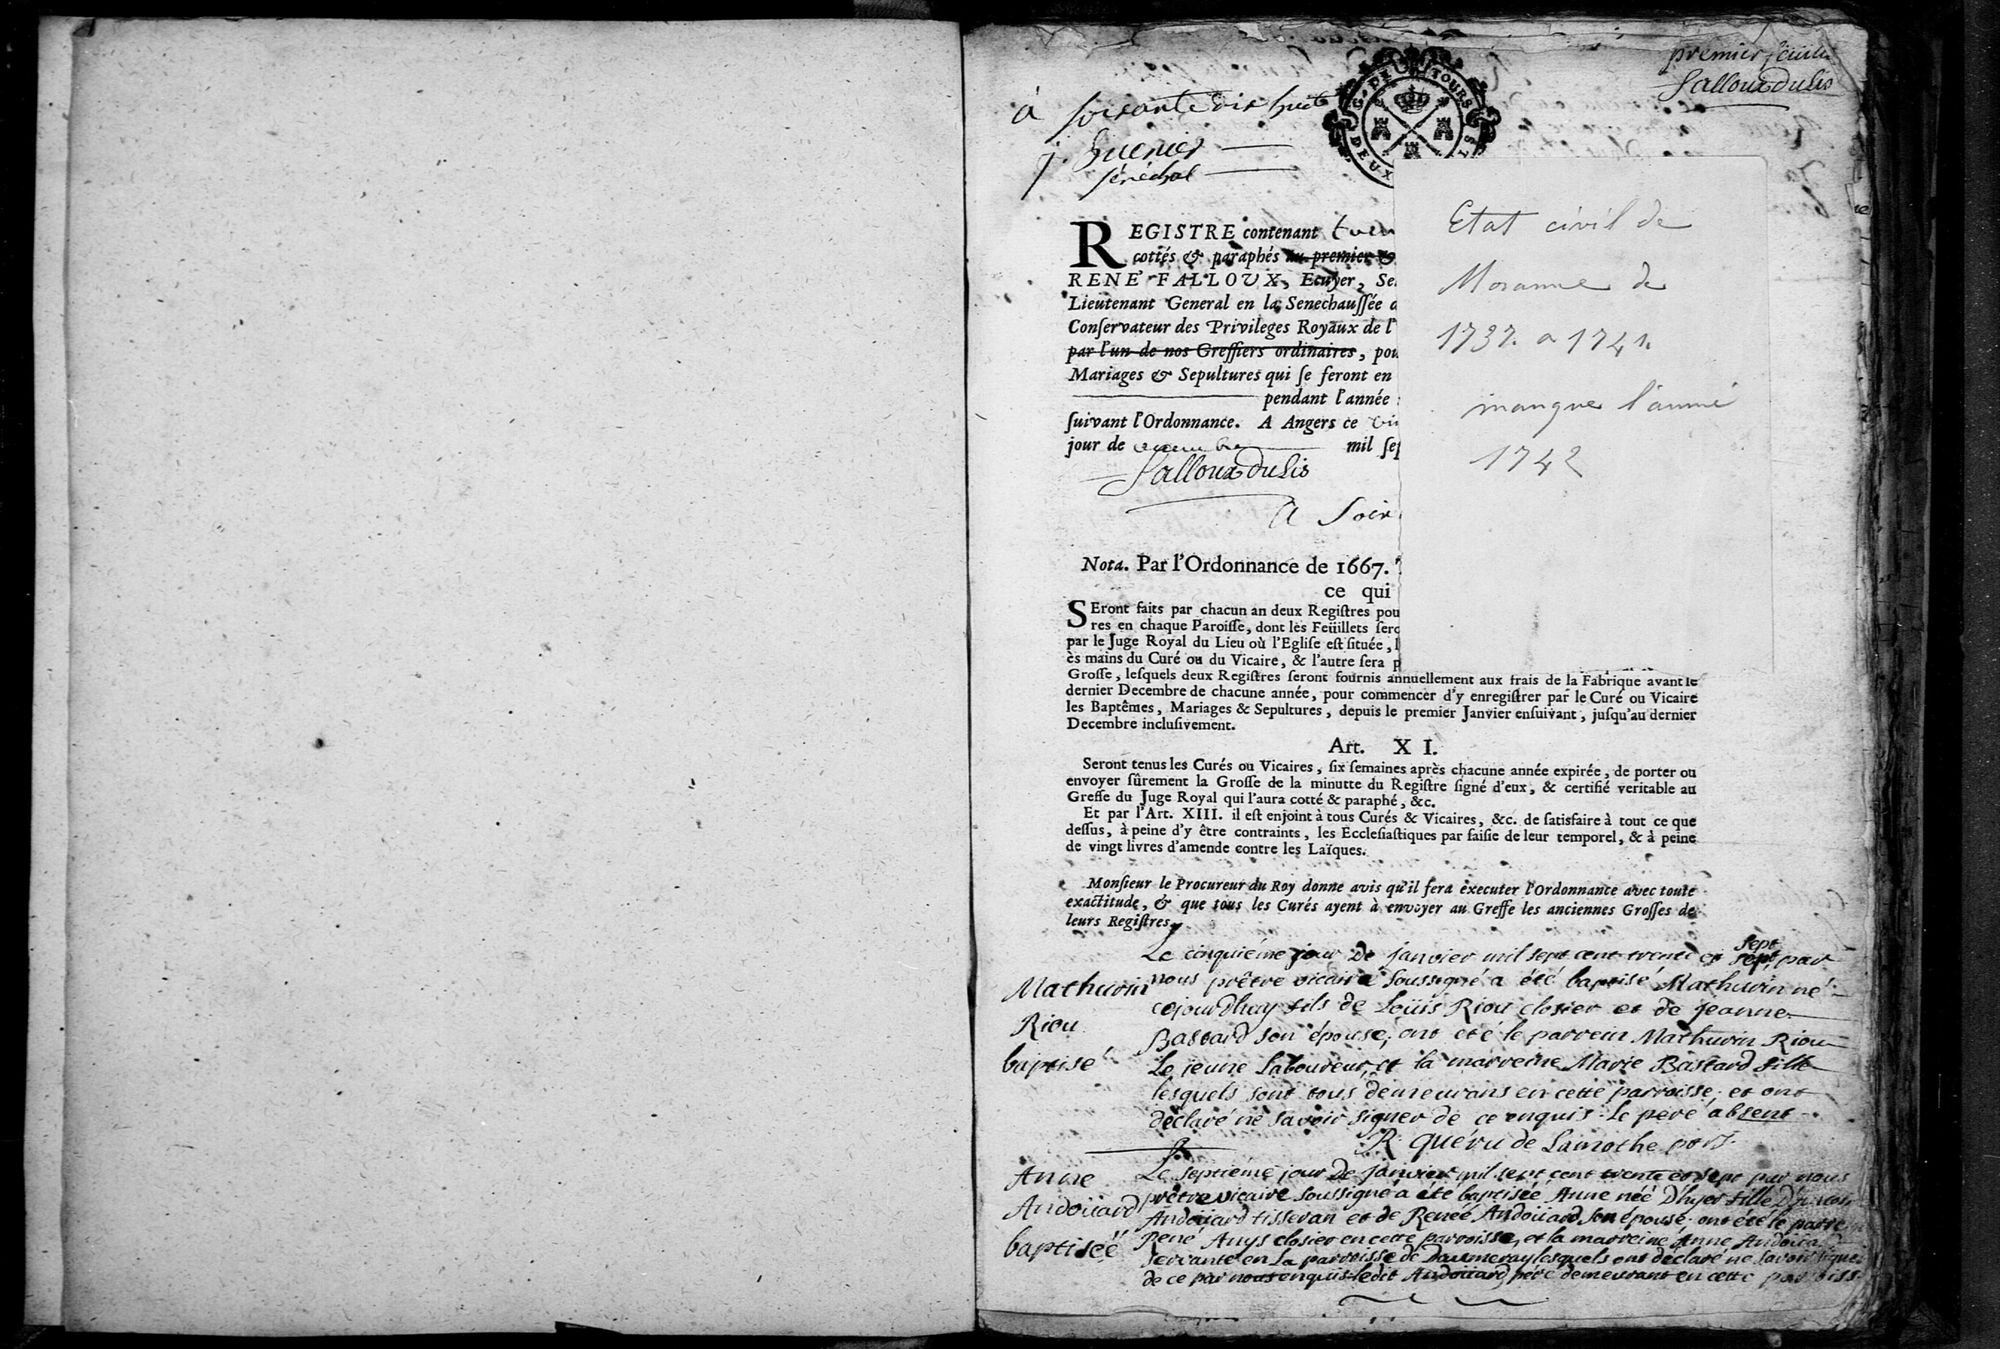 premier feuillet
Falloux Du Lis
G. DE TOURS
DEUX
à soixante dix huit
j. Guenier
sénéchal
REGISTRE contenant
cottés & paraphés au premier &
RENE' FALLOUX, Ecuyer, Se
Lieutenant General en la Senechaussée
Conservateur des Privileges Royaux de l'
par l'un de nos Greffiers ordinaires, pou
Mariages & Sepultures qui se feront en
pendant l'année
suivant l'Ordonnance. A Angers ce
jour de mil sep
Falloux Du Lis
Etat civil de
Moranne de
1737. a 1741.
manque l'année
1742
Nota. Par l'Ordonnance de 1667.
ce qui
SEront faits par chacun an deux Registres pou
res en chaque Paroisse, dont les Feüillets sero
par le Juge Royal du Lieu où l'Eglise est située, l
ès mains du Curé ou du Vicaire, & l'autre sera p
Grosse, lesquels deux Registres seront fournis annuellement aux frais de la Fabrique avant le
dernier Decembre de chacune année, pour commencer d'y enregistrer par le Curé ou Vicaire
les Baptêmes, Mariages & Sepultures, depuis le premier Janvier ensuivant, jusqu'au dernier
Decembre inclusivement.
Art. XI.
Seront tenus les Curés ou Vicaires, six semaines après chacune année expirée, de porter ou
envoyer sûrement la Grosse de la minutte du Registre signé d'eux, & certifié veritable au
Greffe du Juge Royal qui l'aura cotté & paraphé, &c.
Et par l'Art. XIII. il est enjoint à tous Curés & Vicaires, &c. de satisfaire à tout ce que
dessus, à peine d'y être contraints, les Ecclesiastiques par saisie de leur temporel, & à peine
de vingt livres d'amende contre les Laïques.
Monsieur le Procureur du Roy donne avis qu'il fera executer l'Ordonnance avec toute
exactitude, & que tous les Curés ayent à envoyer au Greffe les anciennes Grosses de
leurs Registres.
Mathurin
Riou
baptisé
Le cinquiéme jour de janvier mil sept cent trente et sept sept, par
nous prêtre vicaire soussigné a été baptisé Mathurin né
cejourdhuy fils de Loüis Riou closier et de jeanne
Bastard son épouse, ont eté le parrein Mathurin Riou
le jeune Laboureur, et la marreine Marie Bastard fille
lesquels sont tous demeurans en cette parroisse, et ont
déclaré ne savoir signer de ce enquis. le pere absent
R. quéru de Lamothe ptre
Anne
Andoüard
baptiséé
Le septiéme jour de janvier mil sept cent trente et sept par nous
prêtre vicaire soussigné a été baptiséé Anne néé D'hyer fille
Andoüard tisseran et de Renéé Andoüard son épouse. ont été le parre
René Anys closier en cette parroisse, et la marreine Anne Andoüa
servante en La parroisse de Daumeray lesquels ont déclaré ne savoir signer
de ce par nous enquis ledit Andoüard pere demeurant en cette parroiss